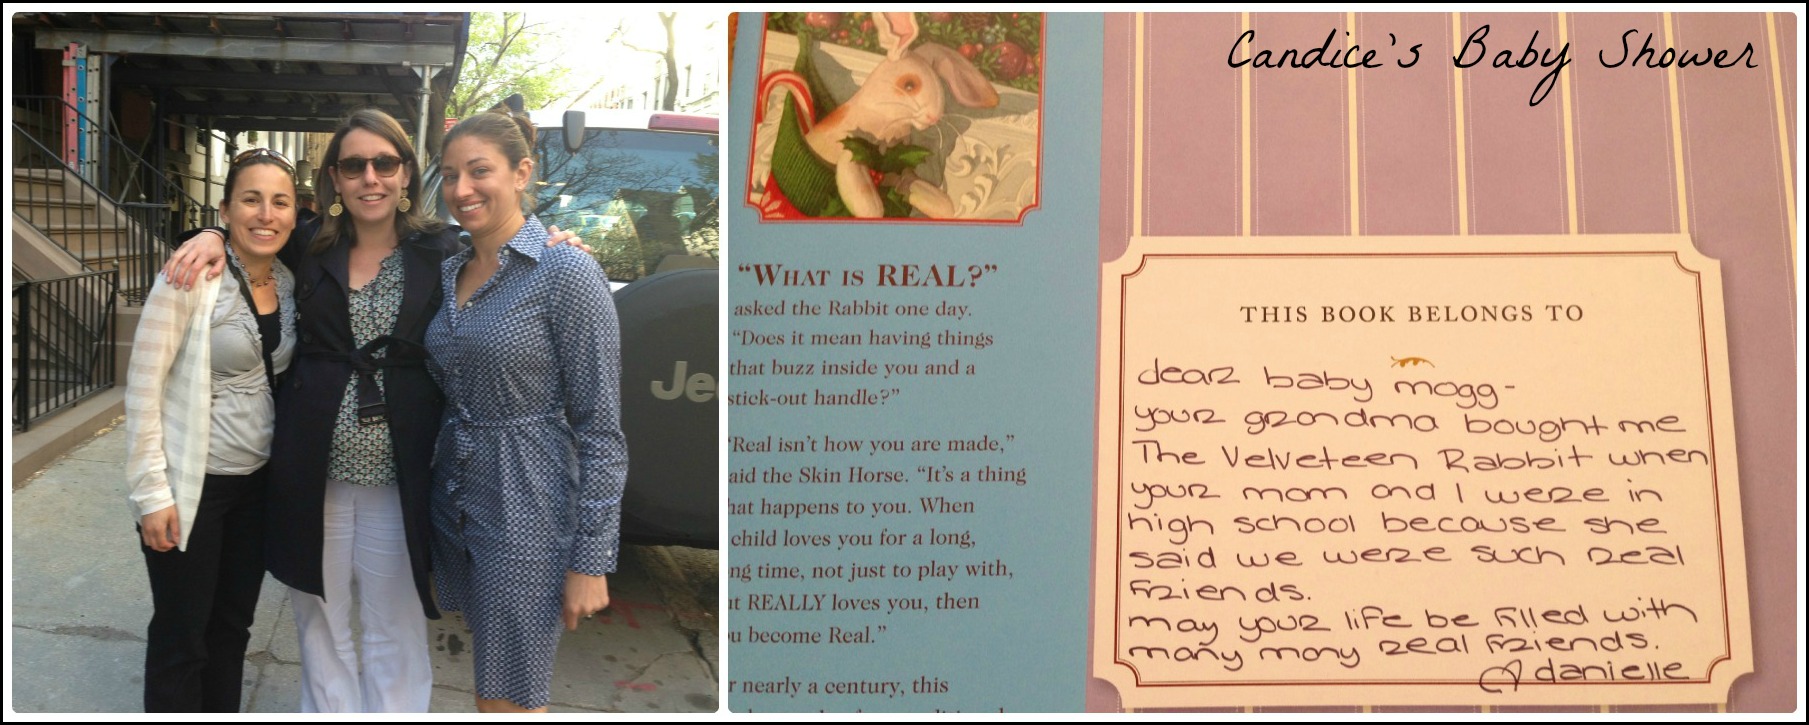 Candice's Baby Shower
Jee
"WHAT IS REAL?"
asked the Rabbit one day.
"Does it mean having things
that buzz inside you and a
stick-out handle?"
"Real isn't how you are made,"
said the Skin Horse. "It's a thing
hat happens to you. When
child loves you for a long,
ng time, not just to play with,
ut REALLY loves you, then
u become Real."
r nearly a century, this
THIS BOOK BELONGS TO
dear baby mogg-
your grandma bought me
The Velveteen Rabbit when
your mom and I were in
high school because she
said we were such real
friends.
may your life be filled with
many many real friends.
danielle